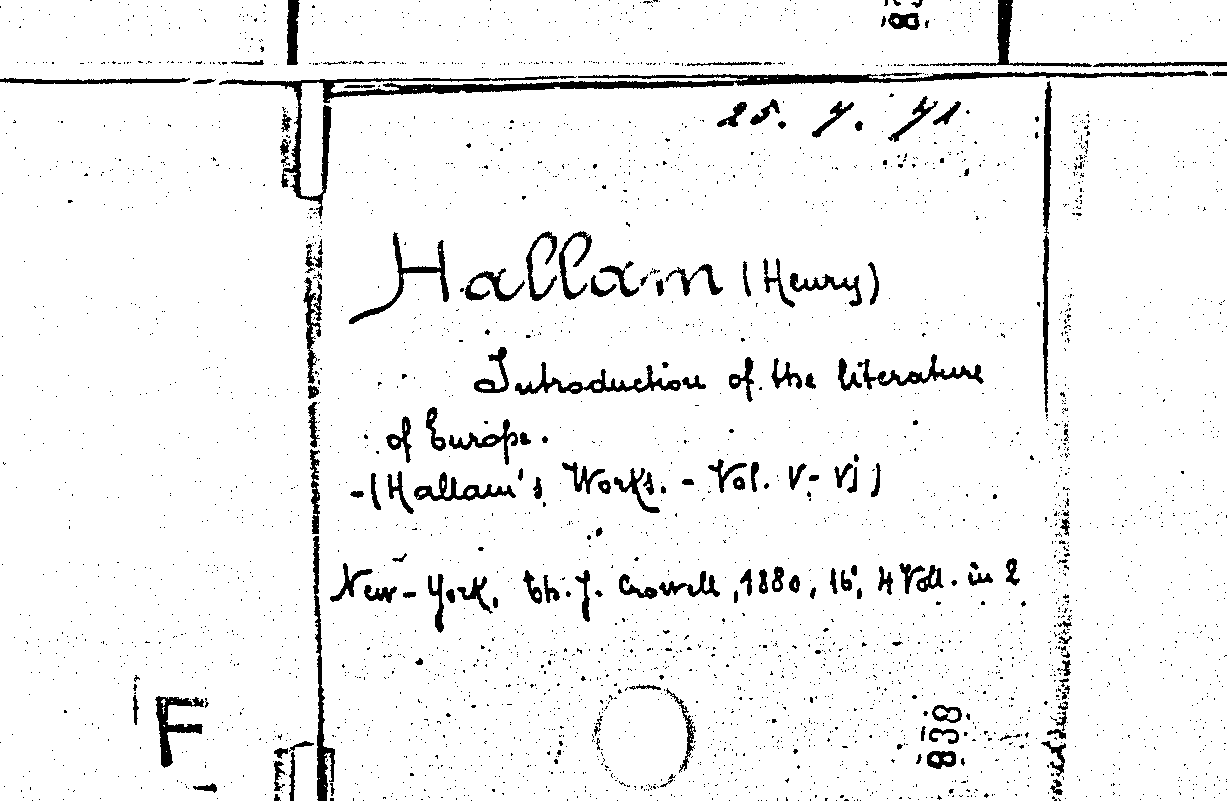 25. 7. 71.
Hallam (Henry)
Introduction of the literature
of Europe.
-(Hallam's Works. - Vol. V-Vj)
New-York, Th. J. Crowell, 1880, 16°, 4 Voll. in 2
F
838